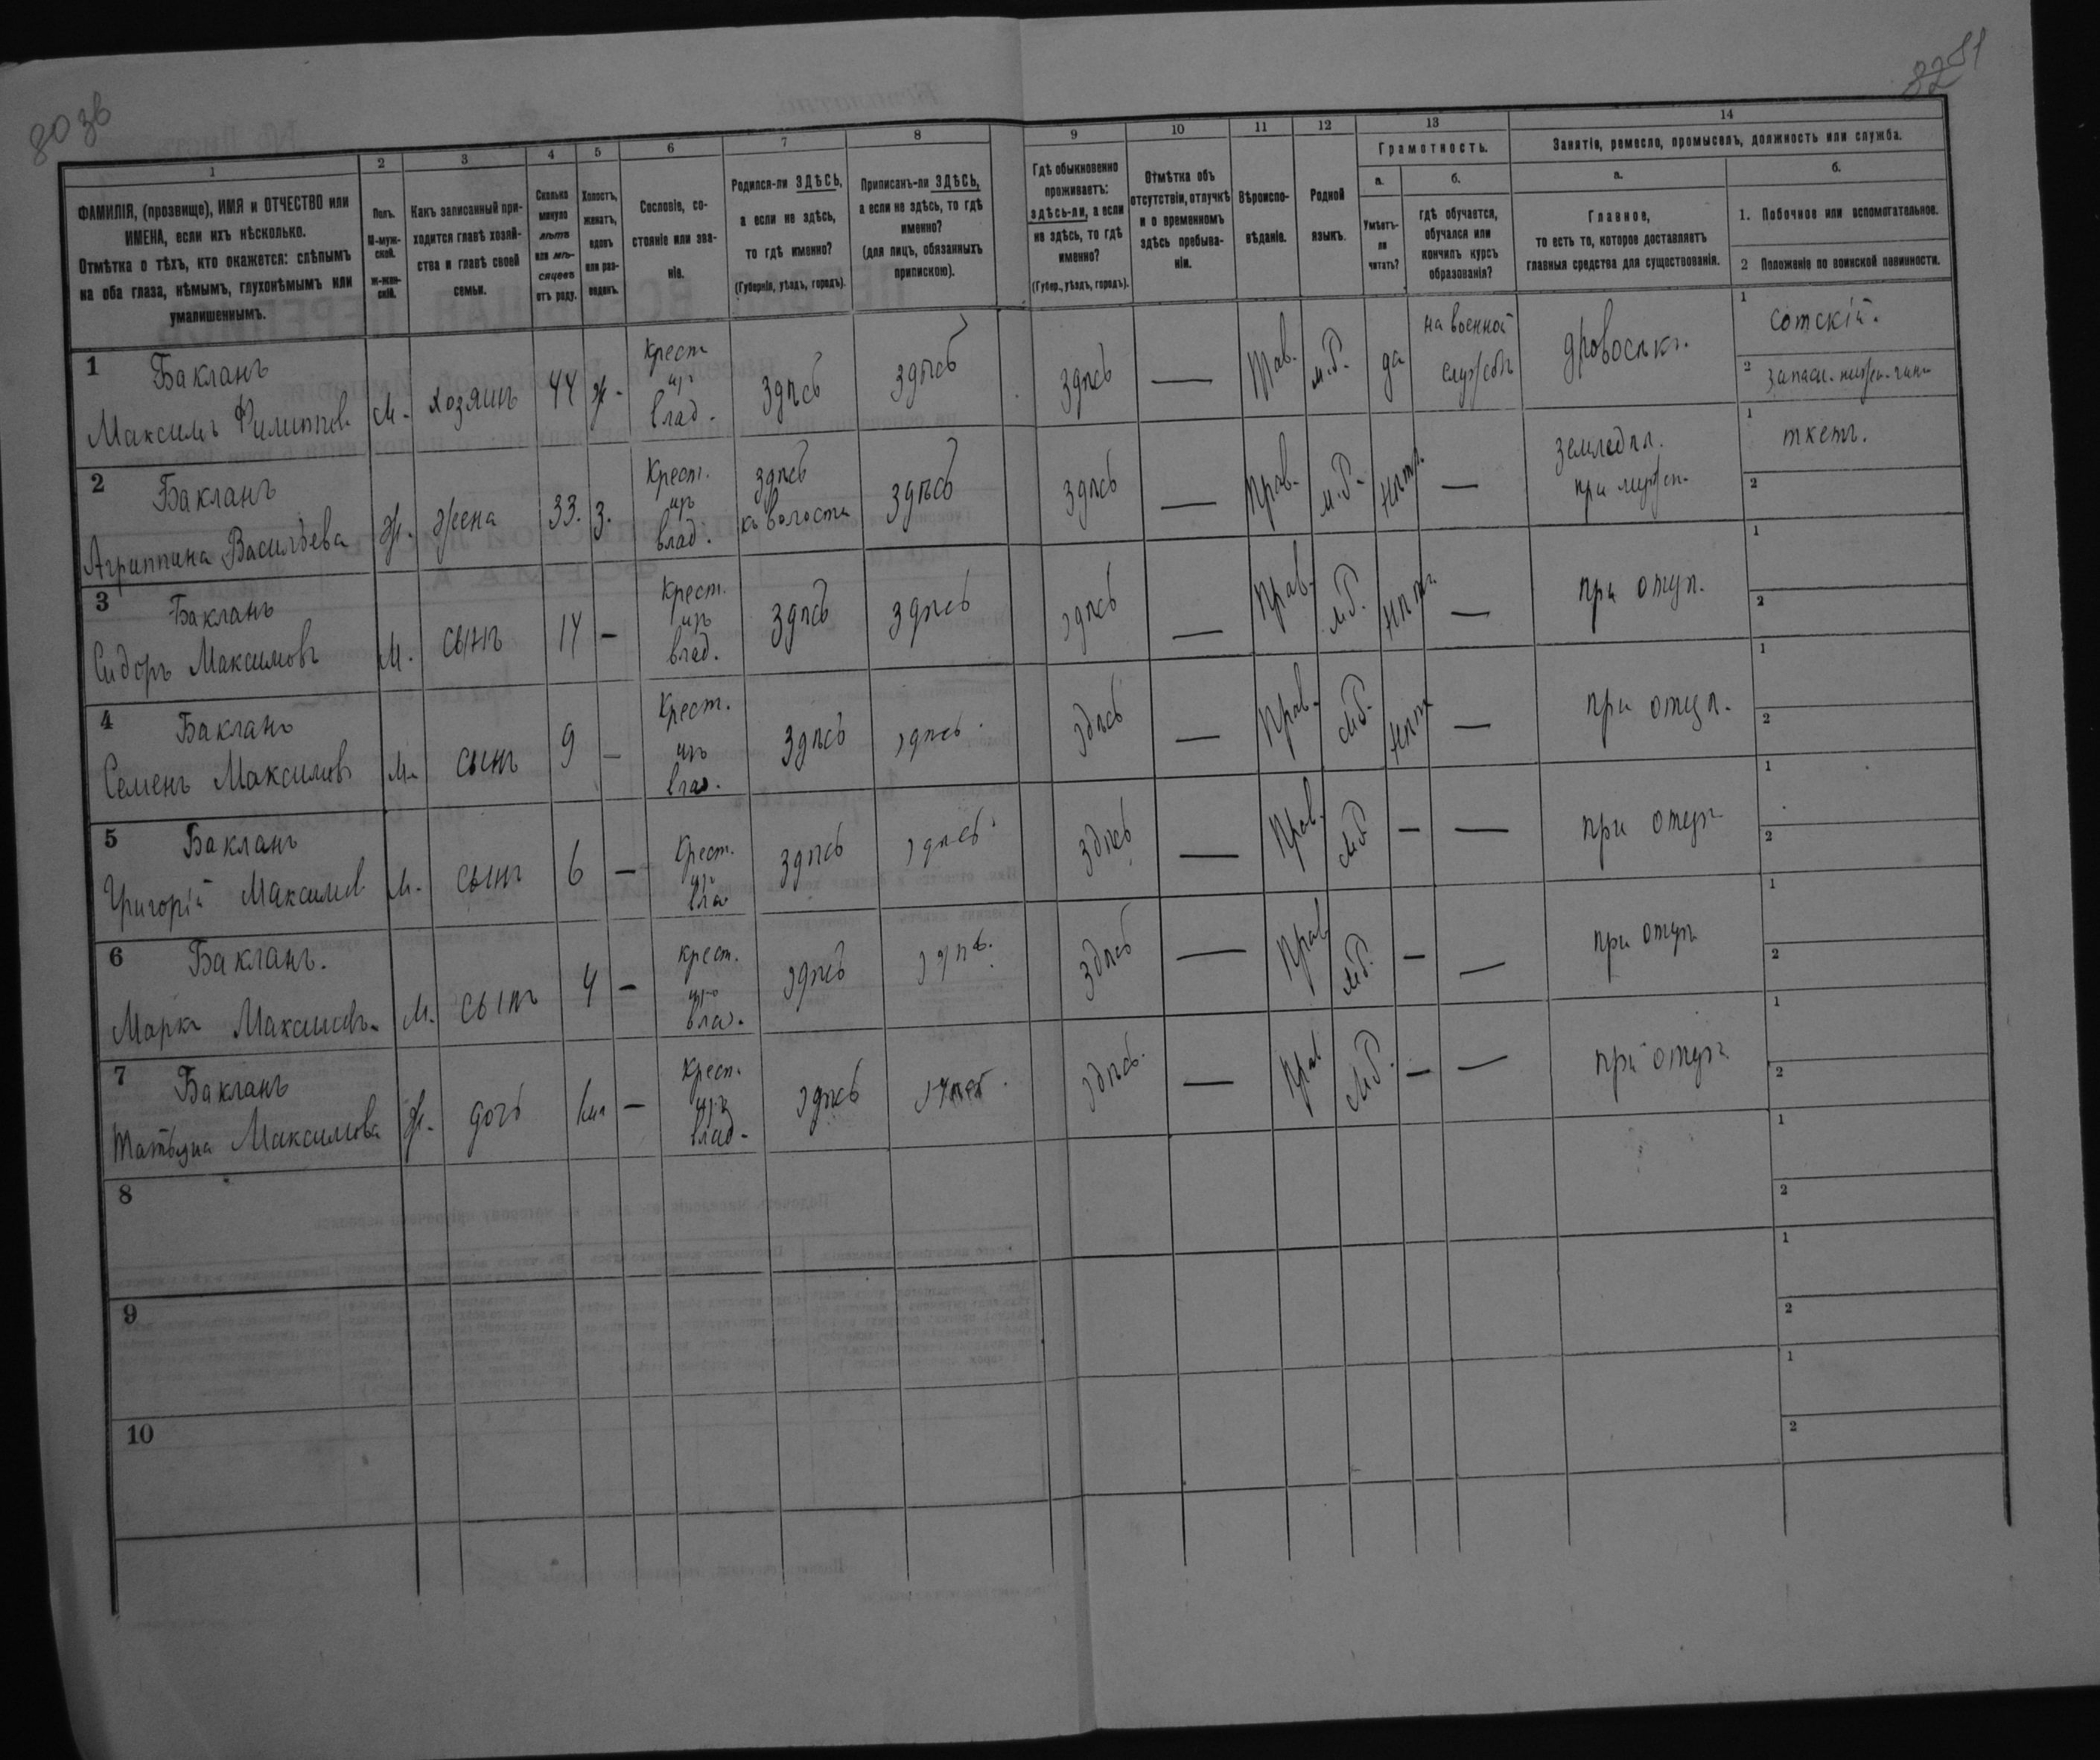 80 зв
82 81
1
ФАМИЛІЯ, (прозвище), ИМЯ и ОТЧЕСТВО или
ИМЕНА, если ихъ нѣсколько.
Отмѣтка о тѣхъ, кто окажется: слѣпымъ
на оба глаза, нѣмымъ, глухонѣмымъ или
умалишеннымъ.
2
Полъ.
М-муж-
ской.
ж-жен-
скій.
3
Какъ записанный при-
ходится главѣ хозяй-
ства и главѣ своей
семьи.
4
Сколько
минуло
лѣтъ
или мѣ-
сяцевъ
отъ роду.
5
Холостъ,
женатъ,
вдовъ
или раз-
веденъ.
6
Сословіе, со-
стояніе или зва-
ніе.
7
Родился-ли ЗДѢСЬ,
а если не здѣсь,
то гдѣ именно?
(Губернія, уѣздъ, городъ).
8
Приписанъ-ли ЗДѢСЬ,
а если не здѣсь, то гдѣ
именно?
(для лицъ, обязанныхъ
припискою).
9
Гдѣ обыкновенно
проживаетъ:
здѣсь-ли, а если
не здѣсь, то гдѣ
именно?
(Губер., уѣздъ, городъ).
10
Отмѣтка объ
отсутствіи, отлучкѣ
и о временномъ
здѣсь пребыва-
ніи.
11
Вѣроиспо-
вѣданіе.
12
Родной
языкъ.
13
Грамотность.
а.
Умѣетъ-
ли
читать?
б.
гдѣ обучается,
обучался или
кончилъ курсъ
образованія?
14
Занятіе, ремесло, промыселъ, должность или служба.
а.
Главное,
то есть то, которое доставляетъ
главныя средства для существованія.
б.
1. Побочное или вспомогательное.
2 Положеніе по воинской повинности.
1
Бакланъ
Максимъ Филиппов.
м.
хозяинъ
44
ж.
Крест
изъ
влад.
здѣсь
здѣсь
здѣсь
—
Прав.
м.р.
да
на военной
службѣ
дровосѣкъ.
1
сотскій.
2
запасн. нижн. чин
2
Бакланъ
Агриппина Васильева
ж.
жена
33.
з.
Крест.
изъ
влад.
здѣсь
волости
здѣсь
здѣсь
—
Прав.
м.р.
нѣтъ.
—
земледѣл.
1
ткетъ.
2
3
Бакланъ
Сидоръ Максимовъ
м.
сынъ
14
—
Крест.
изъ
влад.
здѣсь
здѣсь
здѣсь
—
Прав.
м.р.
нѣтъ.
—
при отцѣ.
1
2
4
Бакланъ
Семенъ Максимовъ
м.
сынъ
9
—
Крест.
изъ
влад.
здѣсь
здѣсь.
здѣсь
—
Прав.
м.р.
нѣтъ
—
при отцѣ.
1
2
5
Бакланъ
Григорій Максимов.
м.
сынъ
6
—
Крест.
изъ
влад
здѣсь
здѣсь
здѣсь
—
Прав.
м.р
—
—
при отцѣ
1
2
6
Бакланъ.
Маркъ Максимовъ.
м.
сынъ
4
—
Крест.
изъ
влад.
здѣсь
здѣсь.
здѣсь
—
Прав
м.р.
—
—
при отцѣ
1
2
7
Бакланъ
Татьяна Максимова
ж.
дочь
—
Крест.
изъ
влад.
здѣсь
здѣсь.
здѣсь.
—
Прав
м.р.
—
—
при отцѣ
1
2
8
1
2
9
1
2
10
1
2